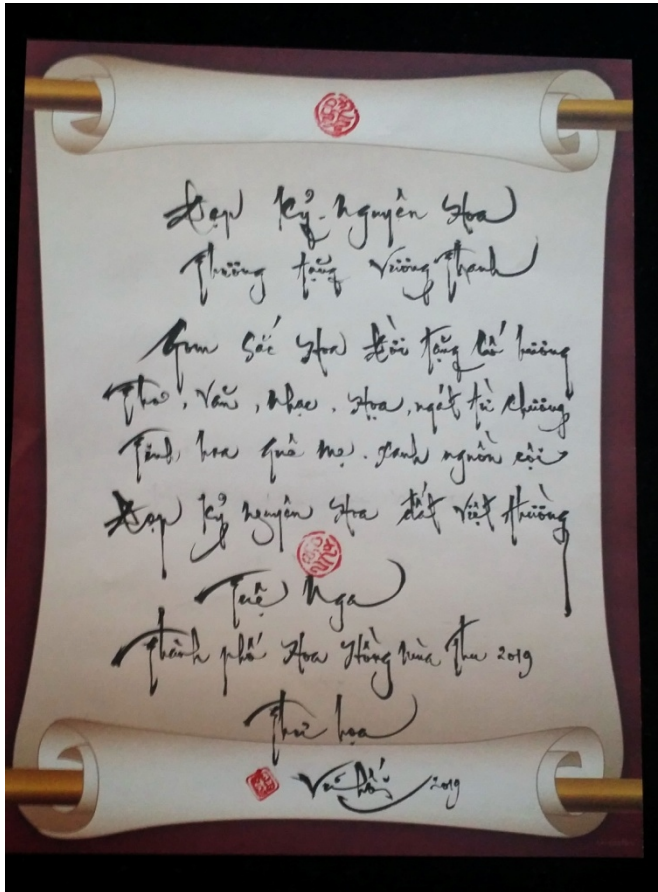 Đẹp Kỷ-Nguyên Hoa
Thương tặng Vương Thanh
Gom Sắc Hoa Đời tặng cố hương
Thơ, Văn, Nhạc, Họa, ngát từ chương
Tinh hoa quê mẹ. xanh nguồn cội
Đẹp Kỷ nguyên Hoa đất Việt thường
Tuệ Nga
Thành phố Hoa Hồng mùa Thu 2019
Thư họa
Vũ Hối 2019